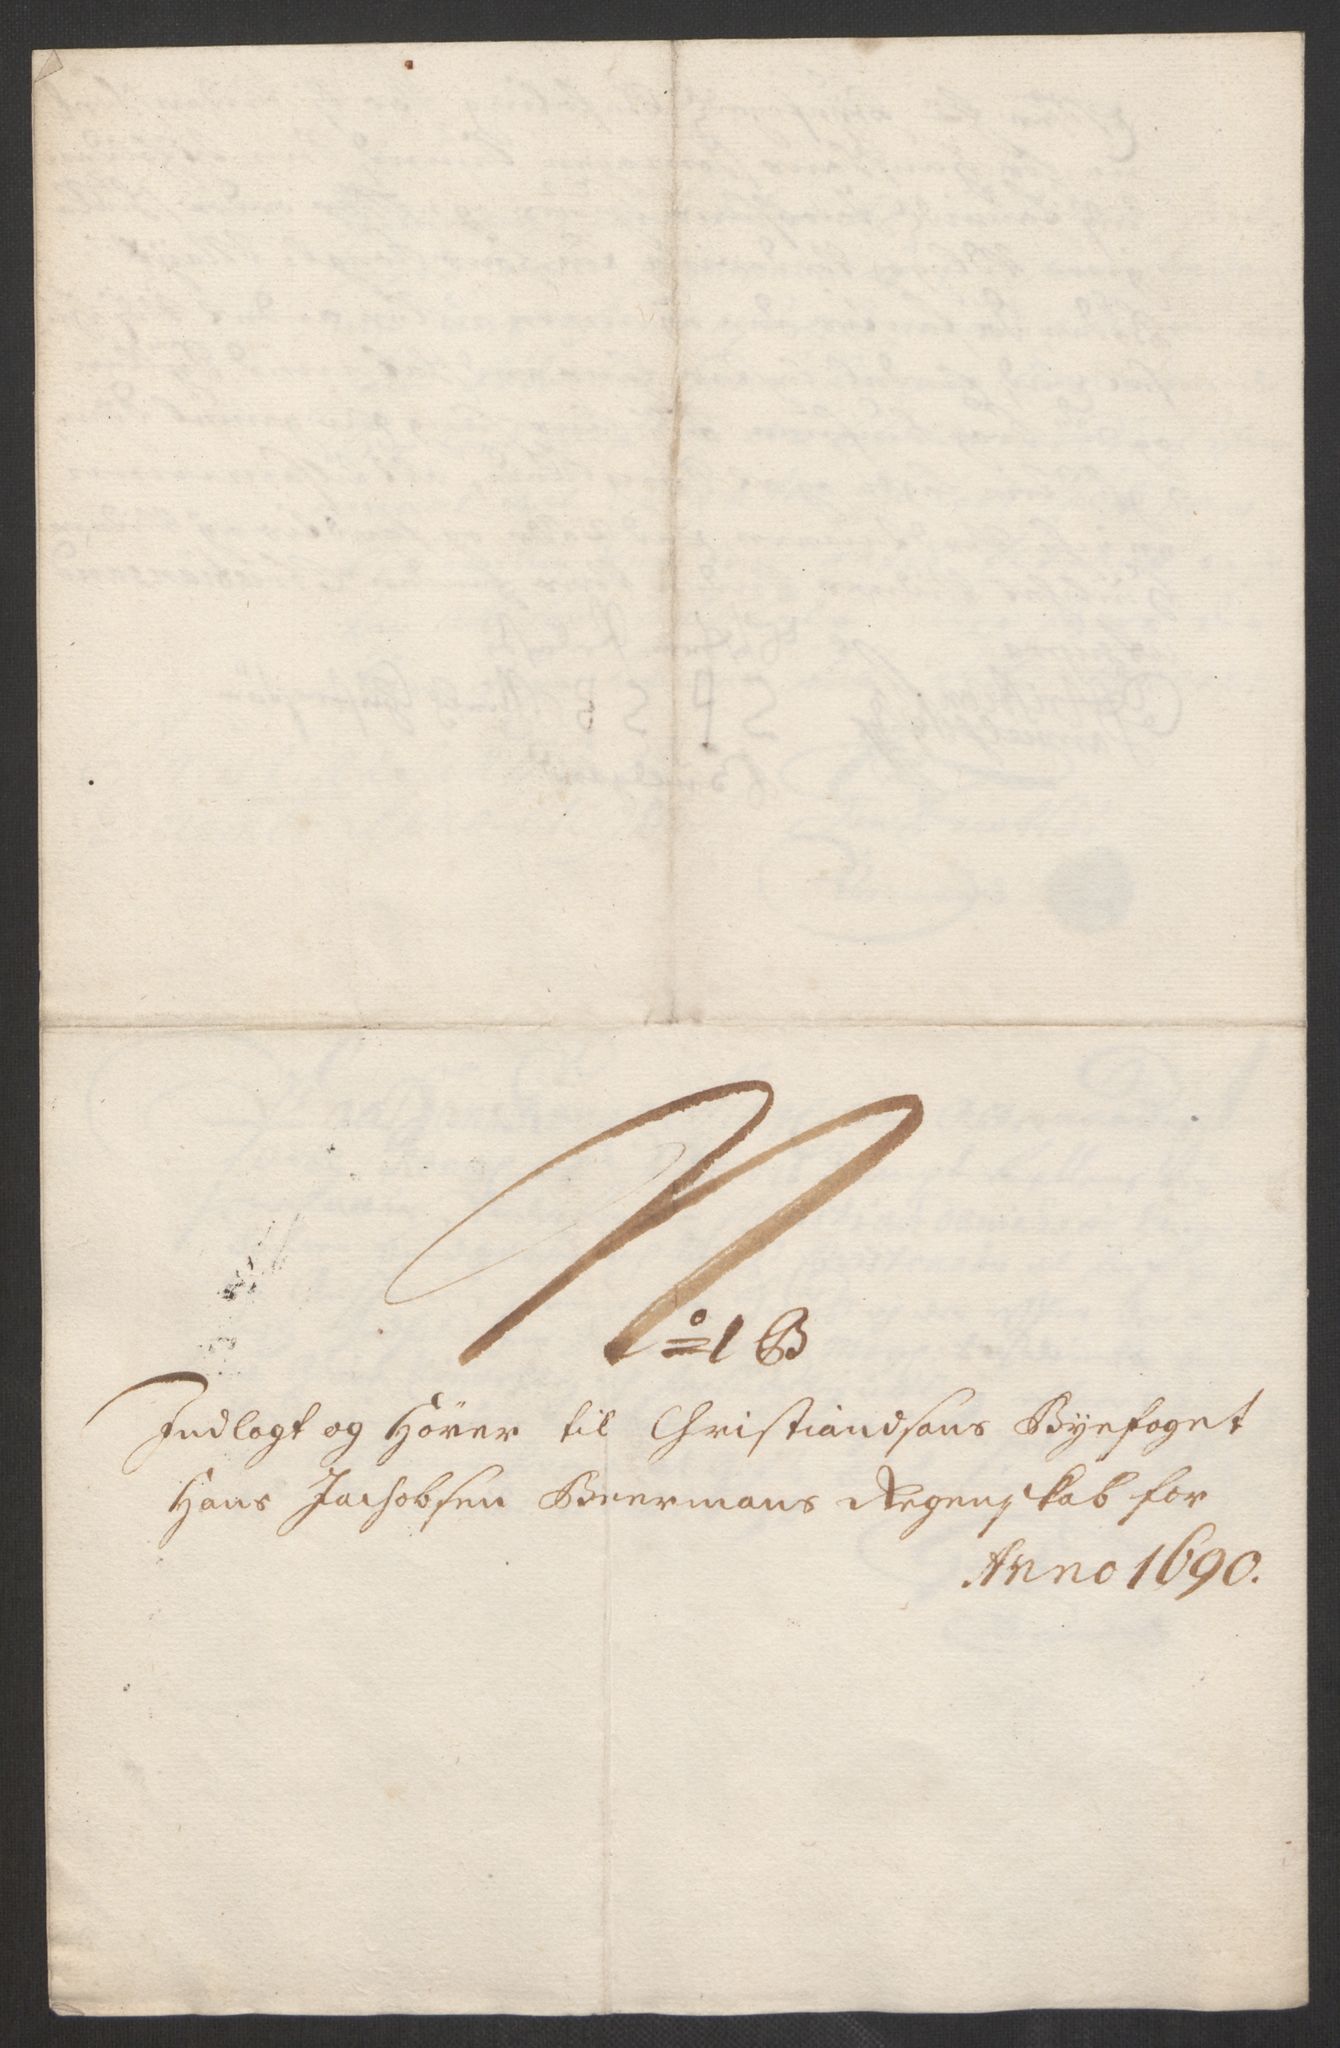 No 1 B
Indlagt og Hörer til Christiandsans Byefoget
Hans Jachobsen Beermans Regenskab for
Anno 1690.